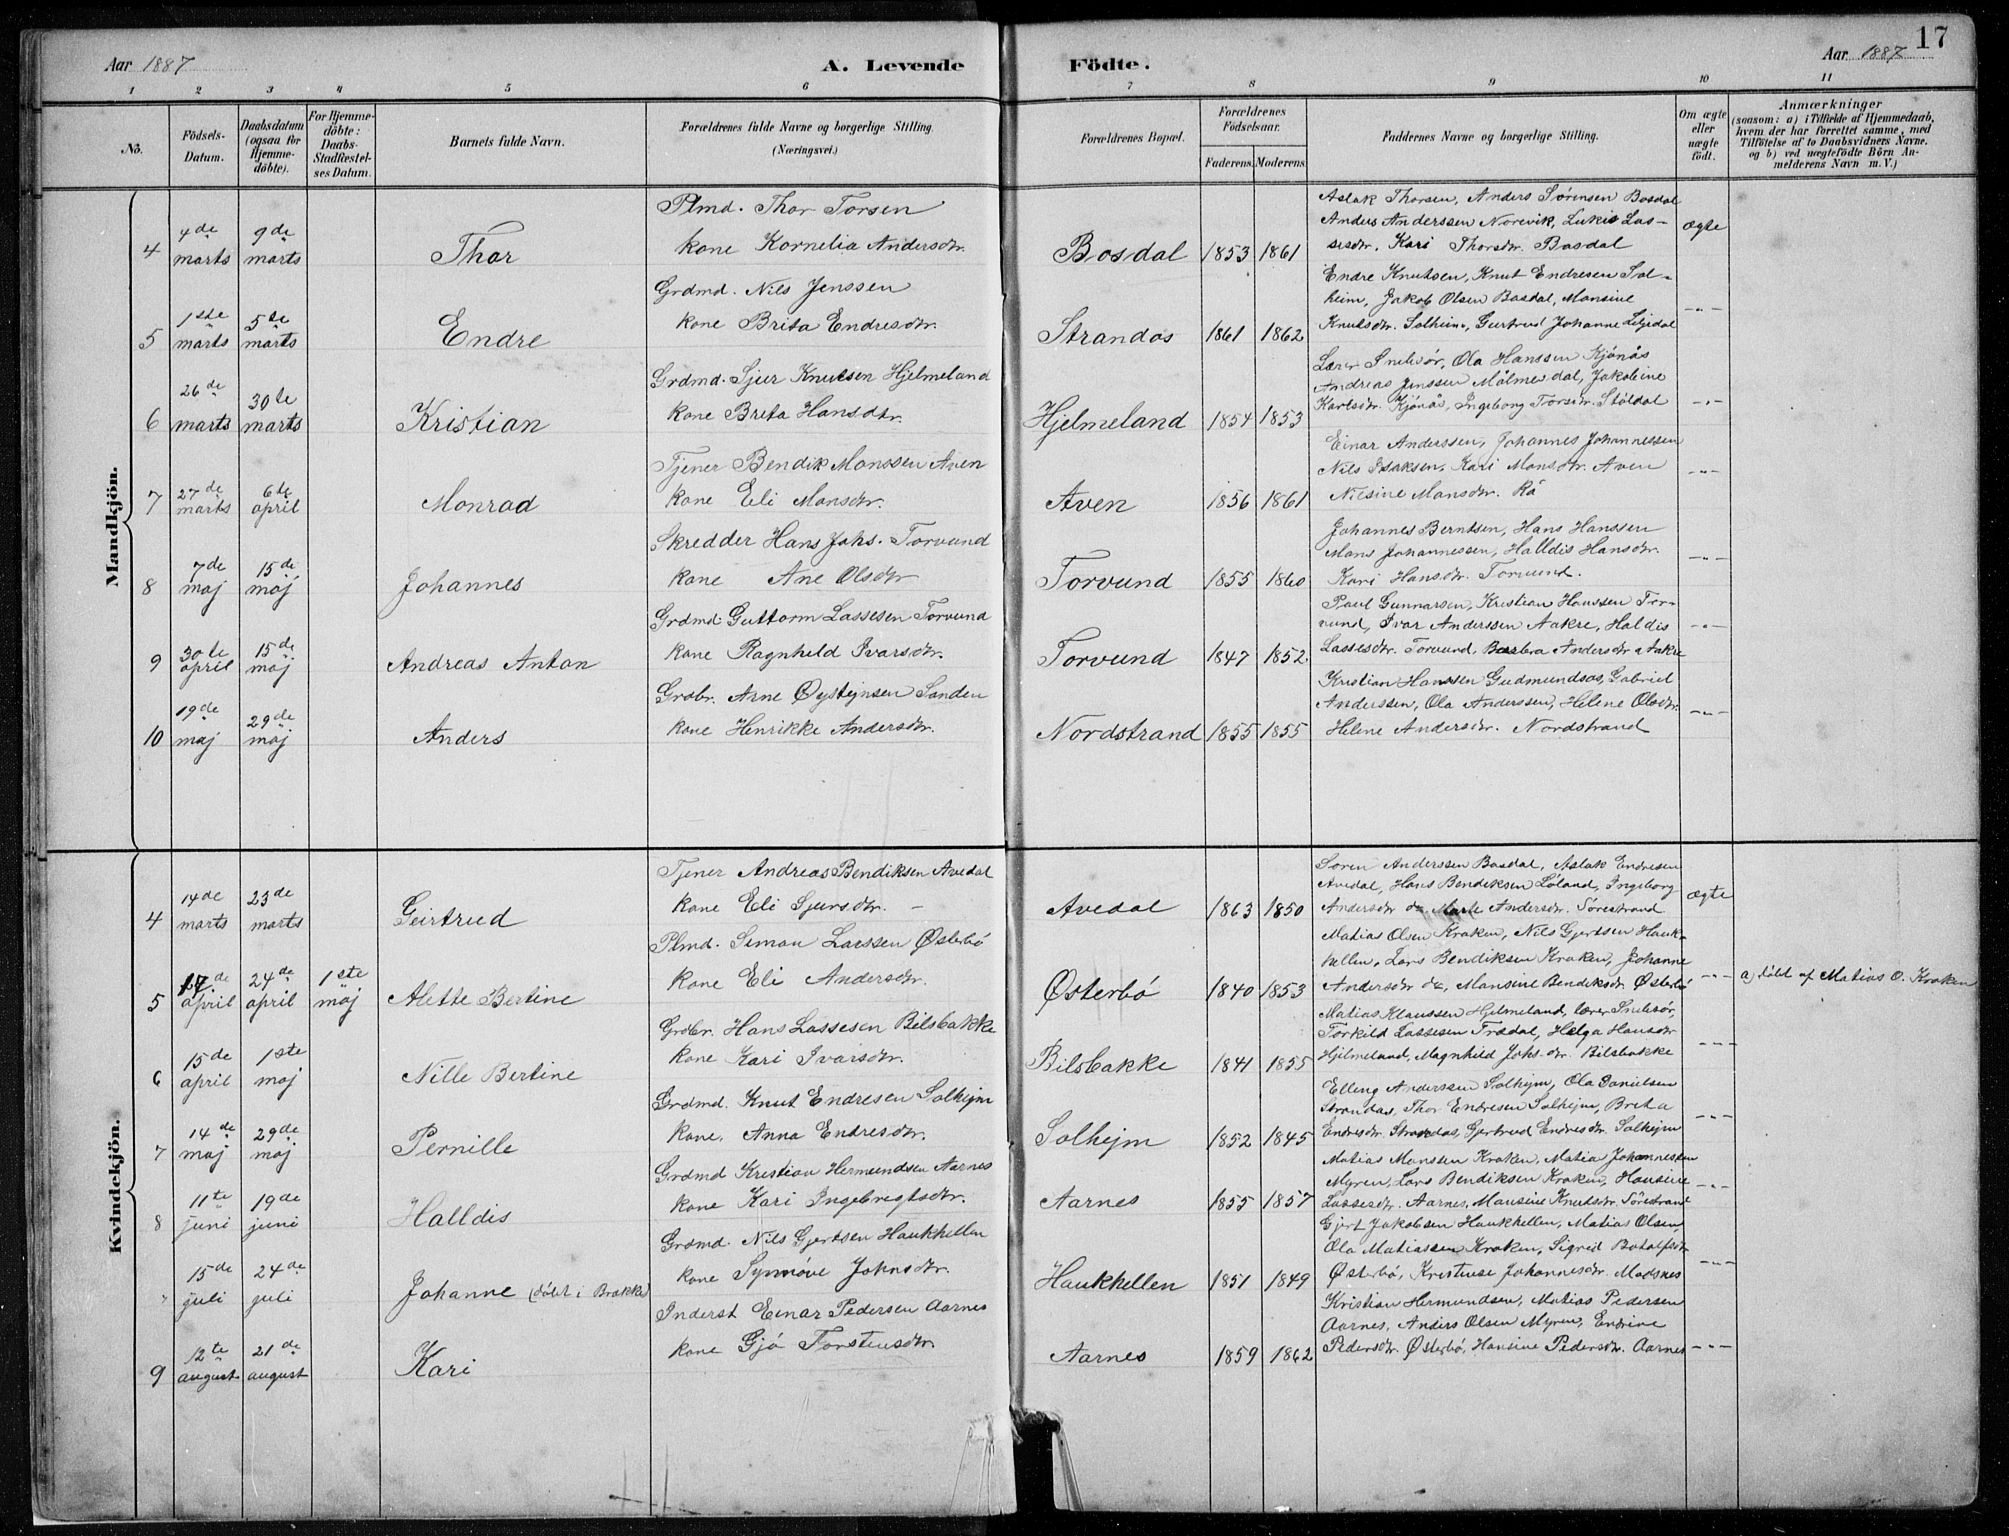 17
Aar 1887 A. Levende Födte. Aar 1887
1 2 3 4 5 6 7 8 9 10 11
No. Födsels-Datum. Daabsdatum (ogsaa for Hjemme-döbte). For Hjemme-döbte: Daabs-Stadfæstel-ses Datum. Barnets fulde Navn. Forældrenes fulde Navne og borgerlige Stilling. (Næringsvei.) Forældrenes Bopæl. Forældrenes Födselsaar. Faderens. Moderens. Faddernes Navne og borgerlige Stilling. Om ægte eller uægte födt. Anmærkninger (saasom: a) i Tilfælde af Hjemmedaab, hvem der har forrettet samme, med Tilföielse af to Daabsvidners Navne. og b) ved uægtefödte Börn An-melderens Navn m. V.)
Mandkjön.
4 4de marts 9de marts Thor Plmd. Thor Torsen
kone Kornelia Andersdtr. Bosdal 1853 1861 Aslak Thorsen, Anders Sørensen Bosdal
Anders Anderssen Norevik, Lukis Las-
sesdtr. Kari Thorsdtr. Bosdal ægte
5 1ste marts 5te marts Endre Grdmd. Nils Jenssen
kone Brita Endresdtr. Strandos 1861 1862 Endre Knutsen, Knut Endresen Sol-
heim, Jakob Olsen Bosdal, Mansine
Knutsdtr. Solheim, Gurtrud Johanne -"-
6 26de marts 30te marts Kristian Grdmd. Sjur Knutsen Hjelmeland
kone Brita Hansdtr. Hjelmeland 1854 1853 Lærer Ola Hanssen Kjónås
Andreas Jenssen Jakobine
Karlsdtr. Kjónås, Ingeborg Torsdtr. Stöldal -"-
7 27de marts 6te april Monrad Tjener Bendik Monssen Aven
kone Eli Monsdtr. Aven 1856 1861 Einar Anderssen, Johannes Johannessen
Nils Isaksen, Kari Monsdtr. Aven
Nilsine Monsdtr. Rå -"-
8 7de maj 15de maj Johannes Skredder Hans Johs. Torvund
kone Ane Olsdtr Torvund 1855 1860 Johannes Berntsen, Hans Hanssen
Mons Johannessen, Halldis Hansdtr.
Kari Hansdtr. Torvund. -"-
9 30te april 15de maj Andreas Anton Grdmd Guttorm Lassesen Torvund
kone Ragnheld Ivarsdtr. Torvund 1847 1852 Paul Gunnarsen, Kristian Hanssen Tor-
vund, Ivar Anderssen Aakre, Haldis
Lassesdtr. Torvund, Barbra Andersdtr Aakre -"-
10 19de maj 29de maj Anders Grdbr. Arne Øystejnsen Sanden
kone Henrikke Andersdtr. Nordstrand 1855 1855 Kristian Hanssen Gudmundsos, Gabriel
Anderssen, Ola Anderssen, Helene Olsdtr.
Helene Andersdtr. Nordstrand -"-
Kvindekjön.
4 14de marts 23de marts Geirtrud Tjener Andreas Bendiksen Avedal
kone Eli Sjursdtr. - Avedal 1863 1850 Soren Anderssen Bosdal, Aslak Endresen
Avedal, Hans Bendiksen Löland, Ingeborg
Andersdtr do. Marte Andersdtr. Sörestrand ægte
5 17de april 24de april 1ste maj Alette Bertine Plmd. Simon Larssen Østerbö
kone Eli Andersdtr. Østerbö 1840 1853 Matias Olsen Kraken, Nils Gjertsen Hauk-
hellen, Lars Bendiksen Kraken, Johanne
Andersdtr do, Mansine Bendiksdtr Østerbö -"- a) döbt af Matias O. Kraken
6 15de april 1ste maj Nille Bertine Grdbr. Hans Lassesen Bilsbakke
kone Kari Ivarsdtr. Bilsbakke 1841 1855 Matias Klaussen Hjelmeland, lærer
Torkild Lassesen Trædal, Helga Hansdtr
Hjelmeland, Magnhild Johs.dtr. Bilsbakke -"-
7 14de maj 29de maj Pernille Grdmd. Knut Endresen Solhejm
kone. Anna Endresdtr. Solhejm 1852 1845 Elling Anderssen Solhejm, Ola Danielsen
Strandos, Thor Endresen Solhejm, Brita
Endresdtr. Strandos, Gjertrud Endresdtr. Solhejm -"-
8 11te juni 19de juni Halldis Grdmd Kristian Hermundsen Aarnes
kone Kari Ingebregtsdtr. Aarnes 1855 1857 Matias Monssen Kraken, Matias Johannessen
Myren, Lars Bendiksen Kraken, Hansine
Lassesdtr. Aarnes, Mansine Knutsdtr. Sörestrand -"-
" 15de juli 24de juli Johanne (döbt i Brekke) Grdmd. Nils Gjertsen Haukhellen
kone Synnöve Johnsdtr. Haukhellen 1851 1849 Gjert Jakobsen Haukhellen, Matias Olsen
Ola Matiassen Kraken, Sigrid Botolfsdtr
Østerbö, Kristense Johannesdtr. Madsnes -"-
9 12te august 21de august Kari Inderst Einar Pedersen Aarnes
kone Gjó Torstensdtr. Aarnes 1859 1862 Kristian Hermundsen, Matias Pedersen
Aarnes, Anders Olsen Myren, Endrine
Pedersdtr. Østerbö, Hansine Pedersdtr. Aarnes -"-